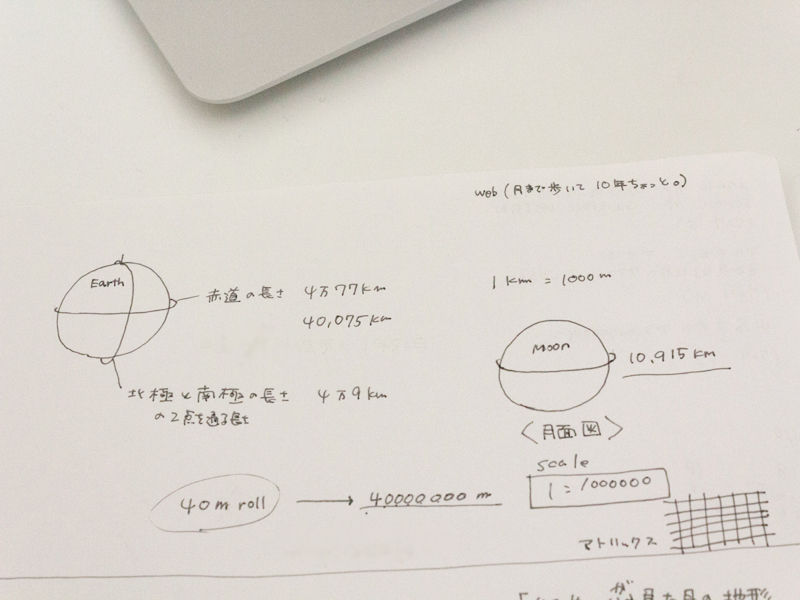 web (月まで歩いて 10年ちょっと。)
Earth
赤道の長さ 4万77km
40,075km
北極と南極の長さ 4万9km
の2点を通る長さ
1km = 1000m
Moon
10,915km
〈月面図〉
40m roll → 40000000 m
scale
1 = 1000000
マトリックス